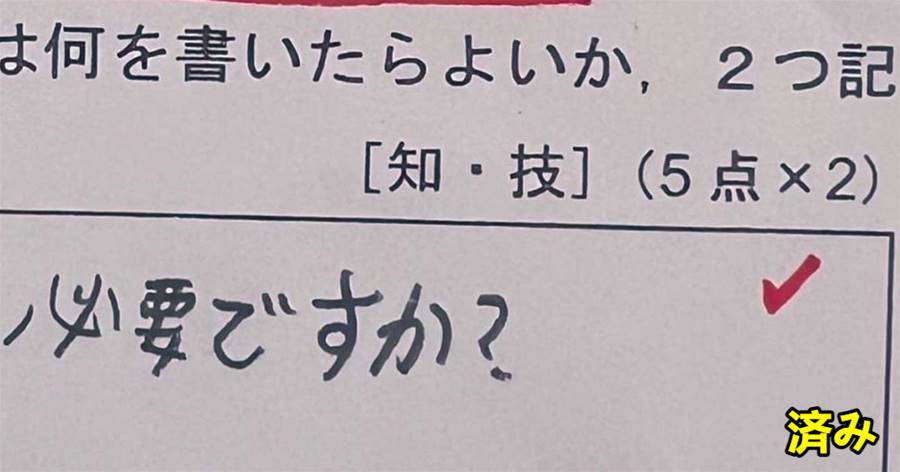 は何を書いたらよいか，２つ記
［知・技］（5点×2）
必要ですか？
済み